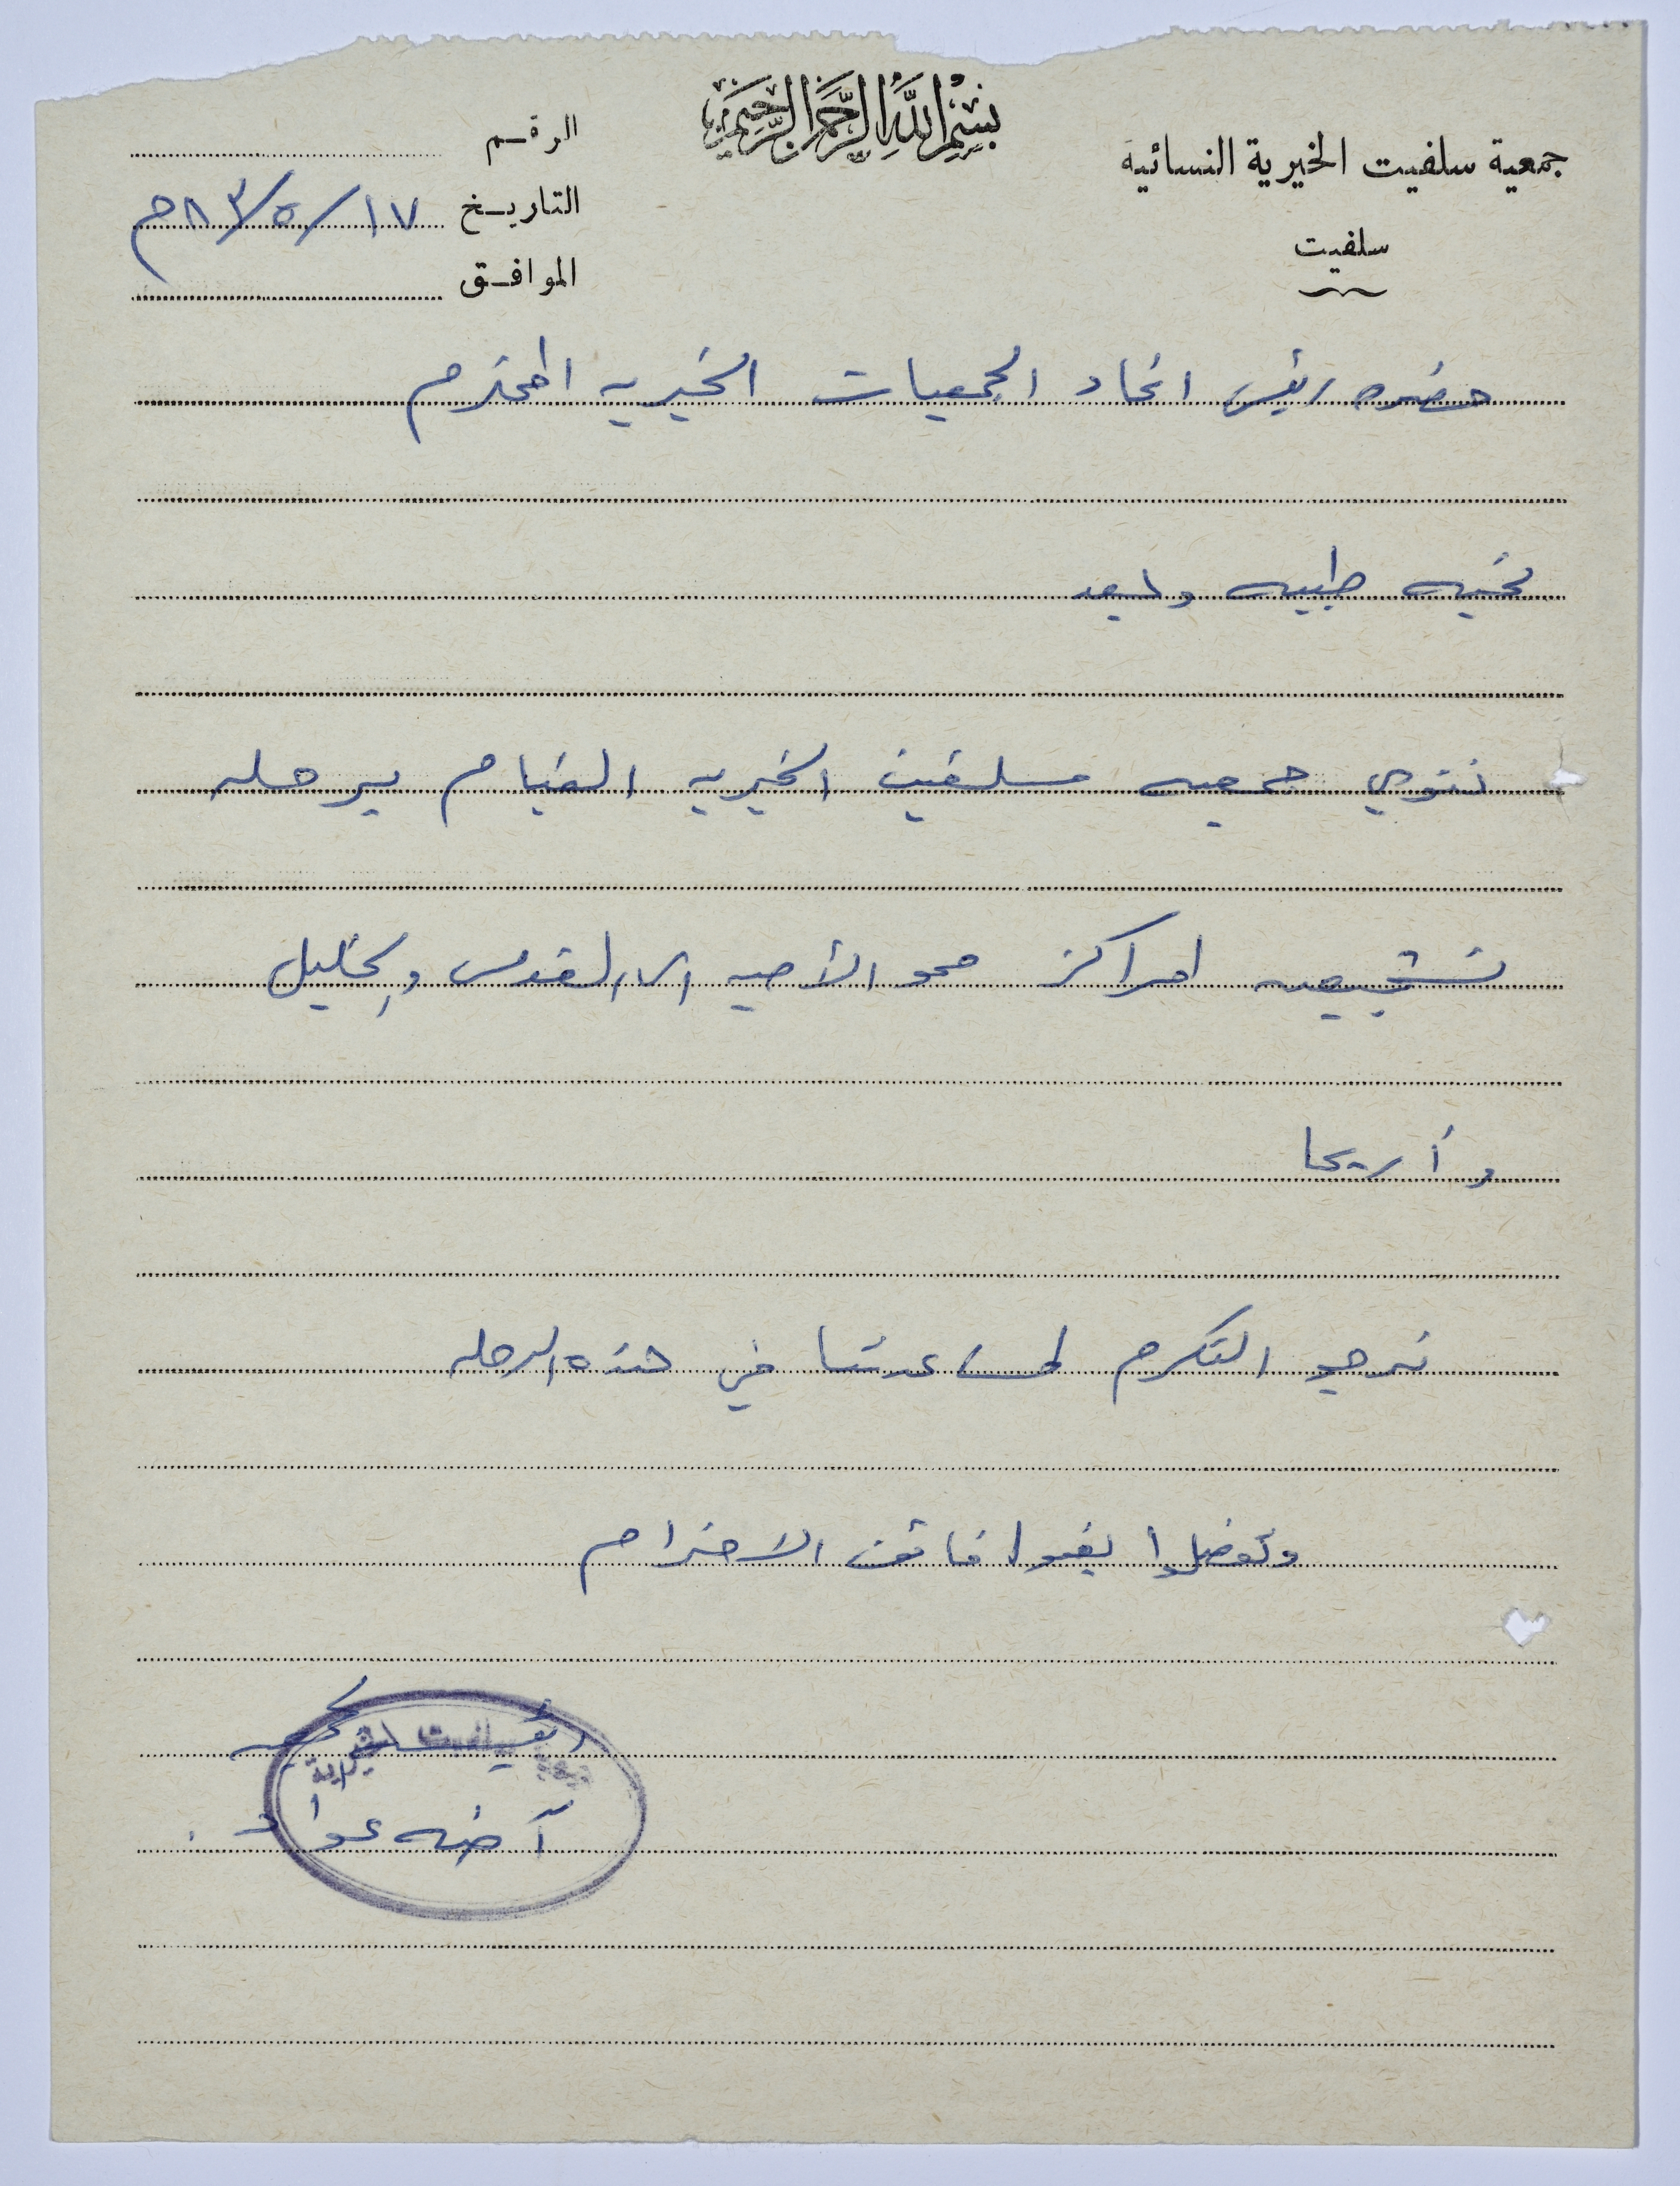 بسم الله الرحمن الرحيم
جمعية سلفيت الخيرية النسائية
سلفيت
الرقم
التاريخ ١٧/٥/٨٣م
الموافق
حضره رئيس اتحاد الجمعيات الخيريه المحترم
تحيه طيبه وبعد
تنوي جمعيه سلفيت الخيريه القيام برحله
تشجيعيه لمراكز محو الأميه الى القدس والخليل
وأريحا
نرجو التكرم لمساعدتنا في هذه الرحله
وتفضلوا بقبول فائق الاحترام
رئيسة الجمعيه
جمعية سلفيت الخيرية
آمنه عواد .